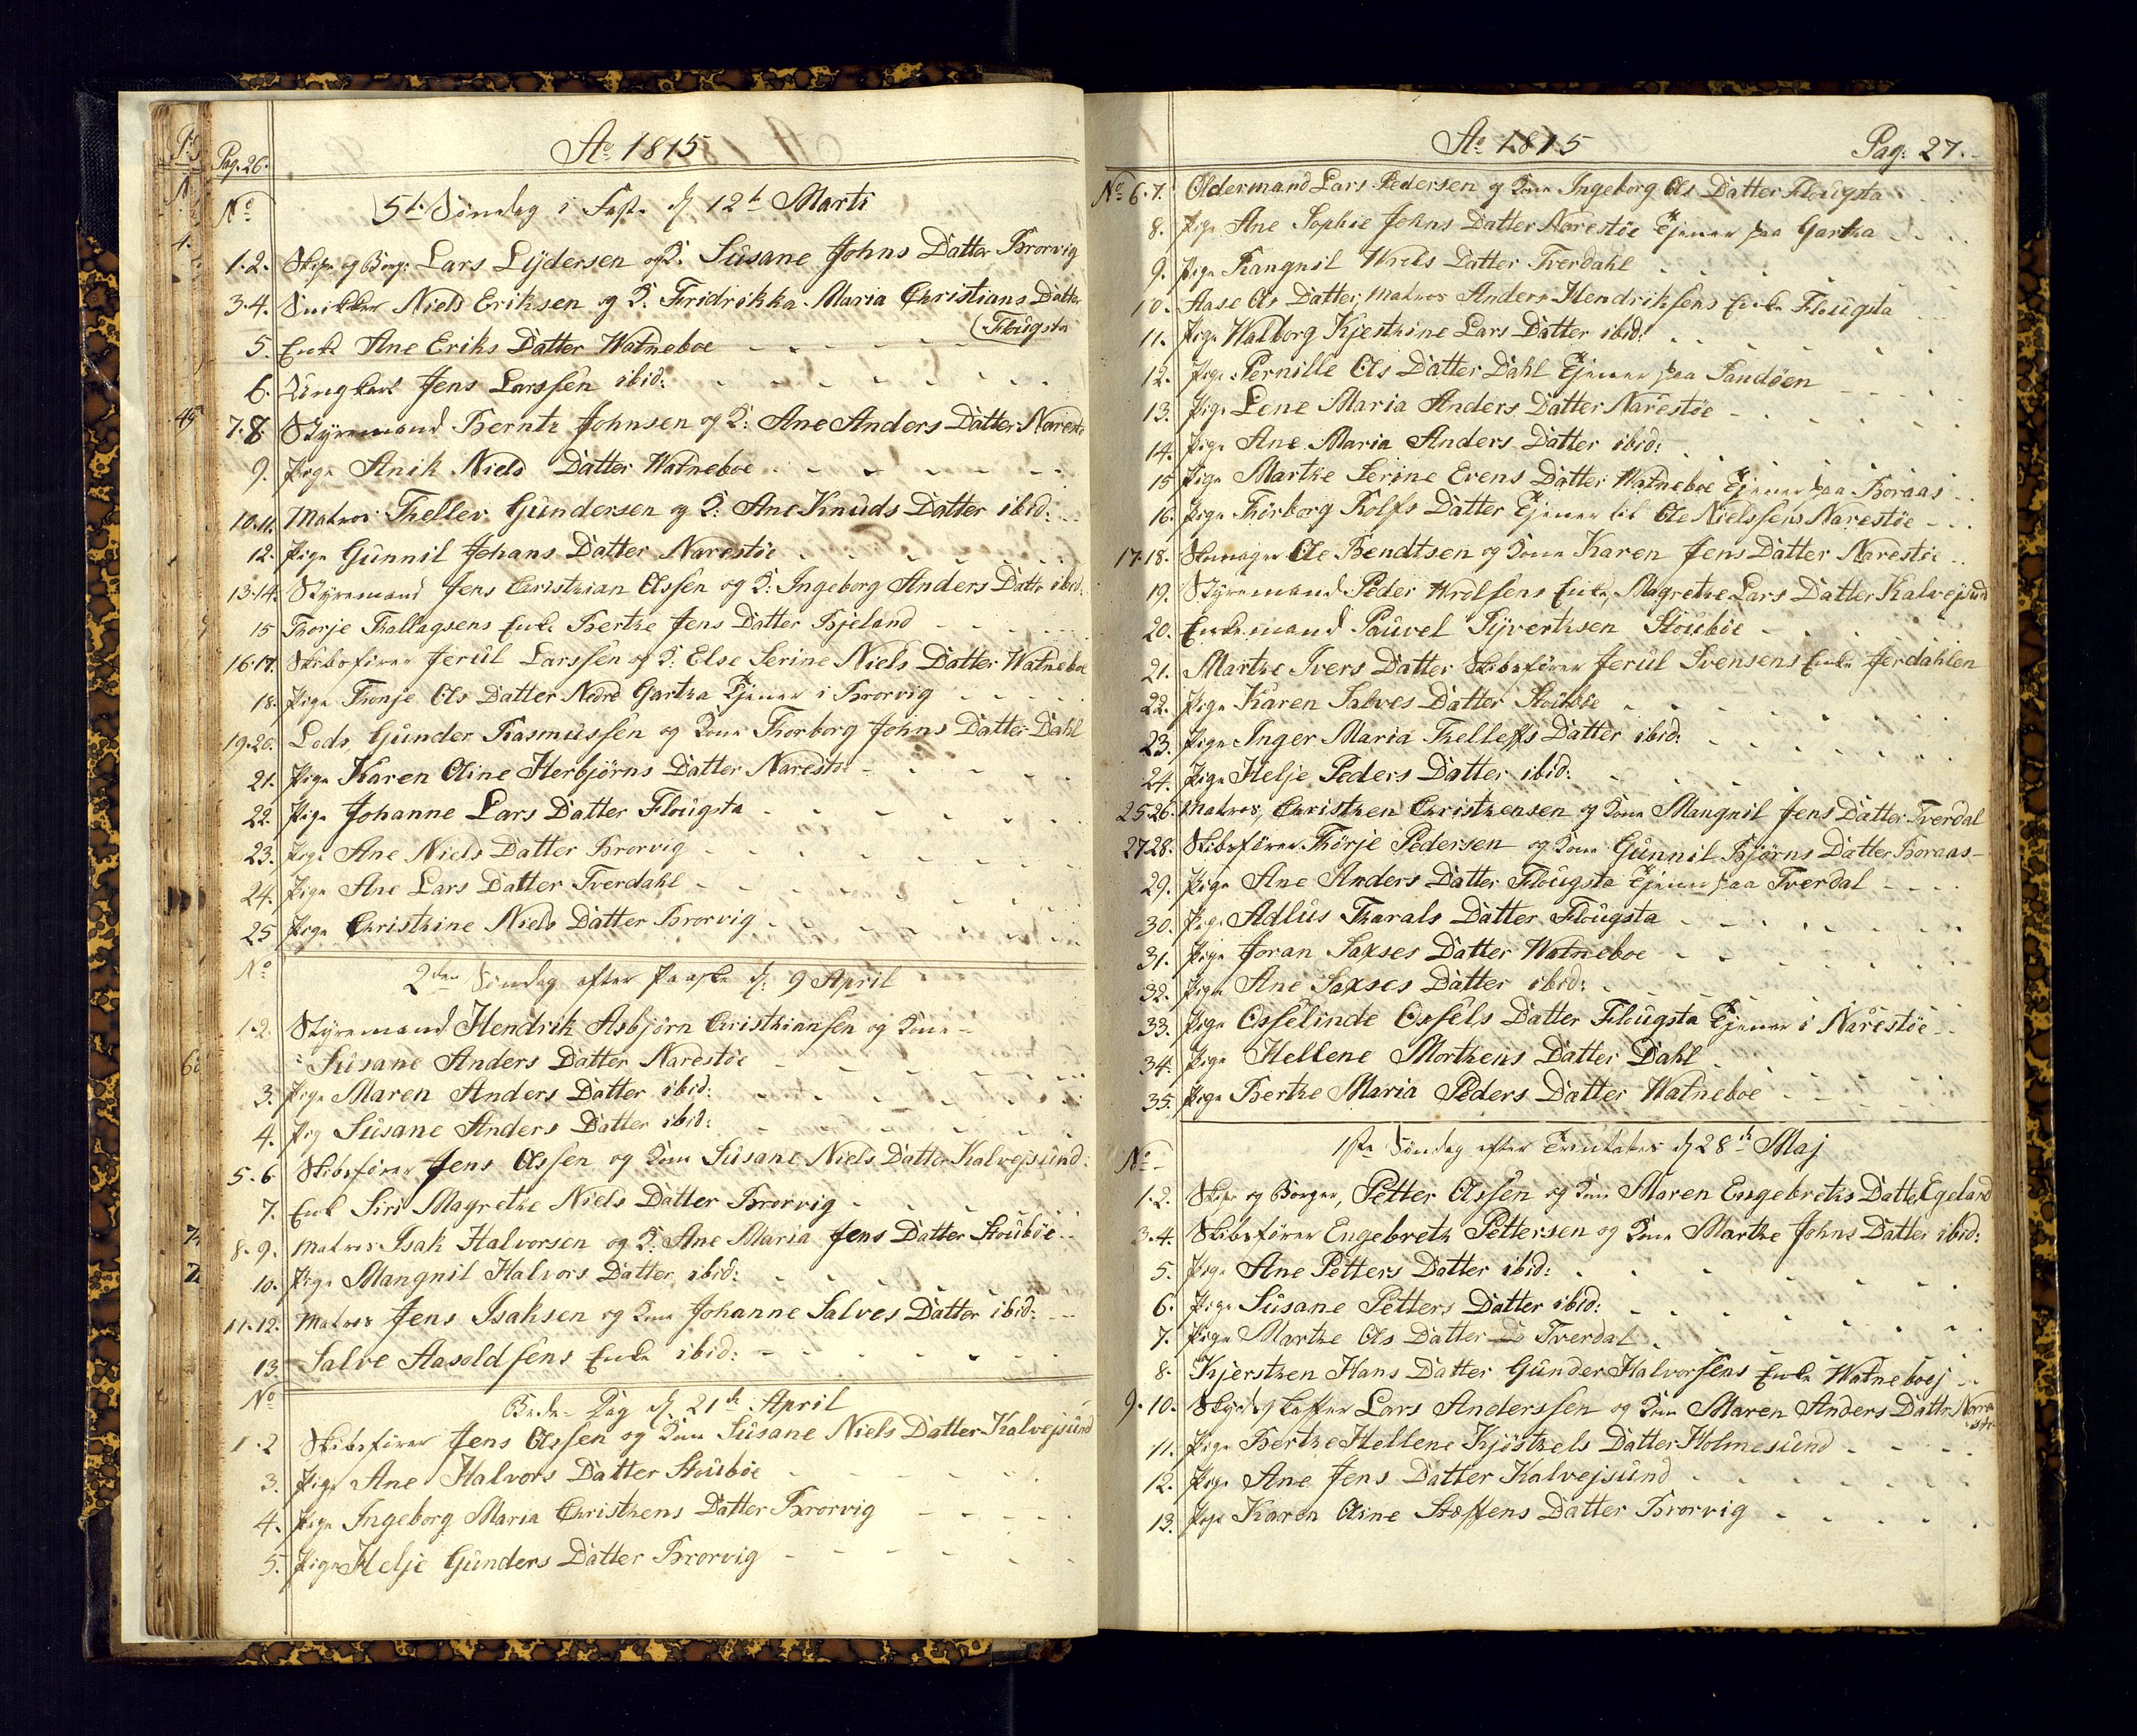 Pag. 26.
Ao 1815
No
5te Søndag i Faste d 12te Marti
1.2. Skipr og Borg: Lars Lydersen og K. Susane Johns Datter Brorvig
3.4. Snikker Niels Eriksen og K. Fridrikka Maria Christians Datter
(Flougsta
5. Enke Ane Eriks Datter Watneboe
6. Ungkarl Jens Larssen ibid:
7.8. Styremand Berntz Johnsen og K: Ane Anders Datter Narestø
9. Pige Anik Niels Datter Watneboe
10.11. Matros Thellev Gundersen og K: Ane Knuds Datter ibid:
12. Pige Gunnil Johans Datter Narestøe
13.14. Styremand Jens Christian Olssen og K: Ingeborg Anders Dattr ibid:
15 Thorje Thallagsens Enke Berthe Jens Datter Bjeland
16.17. Skibsfører Jerul Larssen og K: Else Serine Niels Datter Watneboe
18. Pige Thonje Ols Datter Nedre Gartha Tjener i Brorvig
19.20. Lods Gunder Rasmussen og Kone Thorborg Johns Datter Dahl
21. Pige Karen Oline Herbjørns Datter Narestøe
22. Pige Johanne Lars Datter Flougsta
23. Pige Ane Niels Datter Brorvig
24. Pige Ane Lars Datter Tverdahl
25 Pige Christhine Niels Datter Brorvig
No
2den Søndag efter Paaske d: 9 April
1.2. Styremand Hendrik Asbjørn Christhiansen og Kone
Susane Anders Datter Narestøe
3. Pige Maren Anders Datter ibid:
4. Pig Susane Anders Datter ibid:
5.6 Skibsfører Jens Olssen og Kone Susane Niels Datter Kalvejsund
7. Enke Siri Magrethe Niels Datter Brorvig
8.9. Matros Isak Halvorsen og K: Ane Maria Jens Datter Stoubøe
10. Pige Mangnil Halvors Datter ibid:
11.12. Matros Jens Isaksen og Kone Johanne Salves Datter ibid:
13 Salve Aasoldsens Enke ibid:
No
Bede-Dag d 21de April
1.2 Skibsfører Jens Olssen og Kone Susane Niels Datter Kalvejsund
3. Pige Ane Halvors Datter Stoubøe
4. Pige Ingeborg Maria Christhens Datter Brorvig
5. Pige Helje Gunders Datter Brorvig
Ao 1815
Pag: 27.
No 6.7. Oldermand Lars Pedersen og Kone Ingeborg Ols Datter Flougsta
8. Pige Ane Sophie Johns Datter Narestøe Tjener paa Gartha
9. Pige Rangnil Wrols Datter Tverdahl
10. Aase Ols Datter, Matros Anders Hendriksens Enke Flougsta
11. Pige Walborg Kjesthine Lars Datter ibid:
12. Pige Pernille Ols Datter Dahl Tjener paa Sandøen
13. Pige Lene Maria Anders Datter Narestøe
14. Pige Ane Maria Anders Datter ibid:
15 Pige Marthe Serine Evens Datter Watneboe Tjener paa Boraas
16. Pige Thørborg Rolfs Datter Tjener til Ole Nielssens Narestøe
17.18. Skomager Ole Bendtsen og Kone Karen Jens Datter Narestøe
19. Styremand Peder Wrolsens Enke, Magrethe Lars Datter Kalvejsund
20. Enkemand Pauvel Syverthsen Stoubøe
21. Marthe Ivers Datter Skibsfører Jerul Svensens Enke Jerdahlen
22. Pige Karen Salves Datter Stoubøe
23. Pige Inger Maria Thelleffs Datter ibid:
24. Pige Helje Peders Datter ibid:
25.26. Matros, Christhen Christhensen og Kone Mangnil Jens Datter Tverdal
27.28. Skibsfører Thørje Pedersen og Kone Gunnil Bjørns Datter Boraas
29. Pige Ane Anders Datter Flougsta Tjener paa Tverdal
30. Pige Adlus Tharals Datter Flougsta
31. Pige Joran Saxses Datter Watneboe
32. Pige Ane Saxses Datter ibid:
33. Pige Osselinde Ossels Datter Flougsta Tjener i Narestøe
34. Pige Hellene Morthens Datter Dahl
35. Pige Berthe Maria Peders Datter Watneboe
No
1ste Søndag efter Trinitatis d 28de Maj
1.2. Skipr og Borger, Petter Olssen og Kone Maren Engebreths Datter Egeland
3.4. Skibsfører Engebreth Pettersen og Kone Marthe Johns Datter ibid:
5. Pige Ane Petters Datter ibid:
6. Pige Susane Petters Datter ibid:
7. Pige Marthe Ols Datter Tverdal
8. Kjersthen Hans Datter Gunder Halvorsens Enke Watneboej
9.10. Skydsskaffer Lars Anderssen og Kone Maren Anders Dattr Narestøe
11. Pige Berthe Hellene Kjøsthels Datter Holmesund
12. Pige Ane Jens Datter Kalvejsund
13. Pige Karen Oline Steffens Datter Brorvig